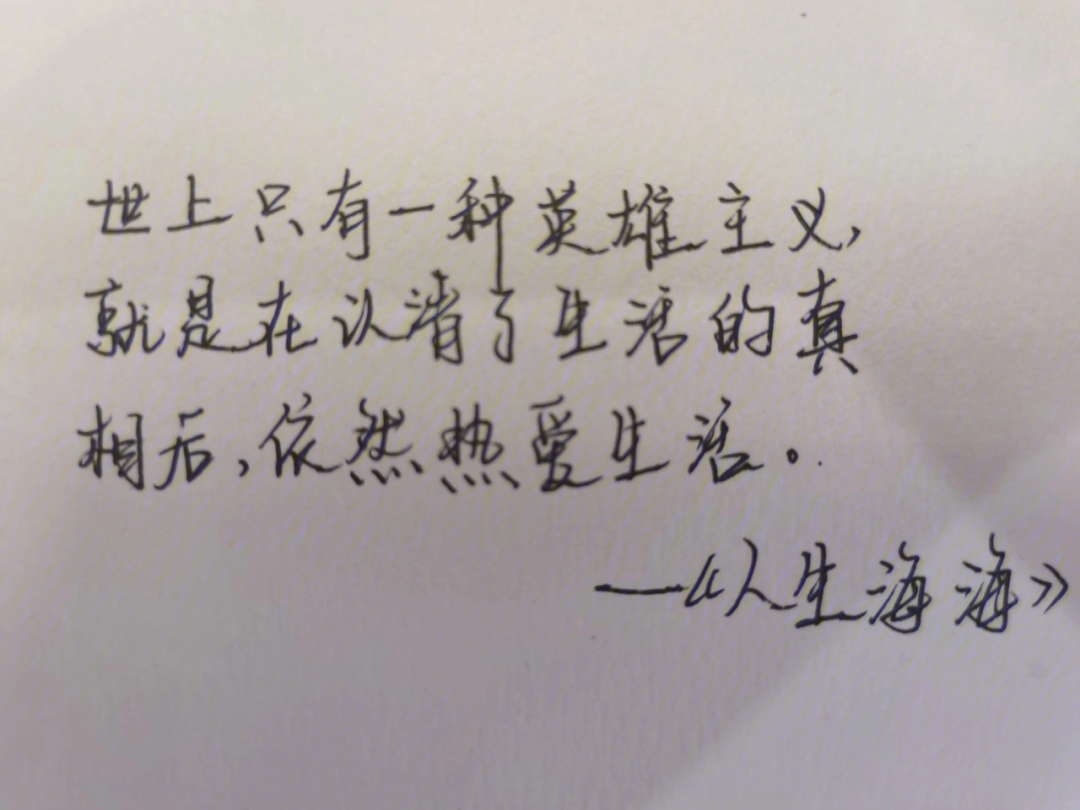 世上只有一种英雄主义,
就是在认清了生活的真
相后,依然热爱生活。
——《人生海海》